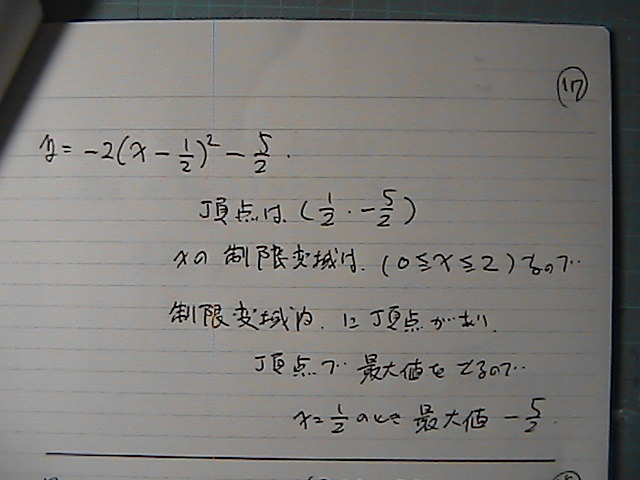 ⑰
y = -2(x - 1/2)² - 5/2.
頂点は、(1/2, -5/2)
xの制限変域は、(0≦x≦2)なので
制限変域内、に頂点があり、
頂点で最大値をとるので
x=1/2のとき最大値 -5/2.